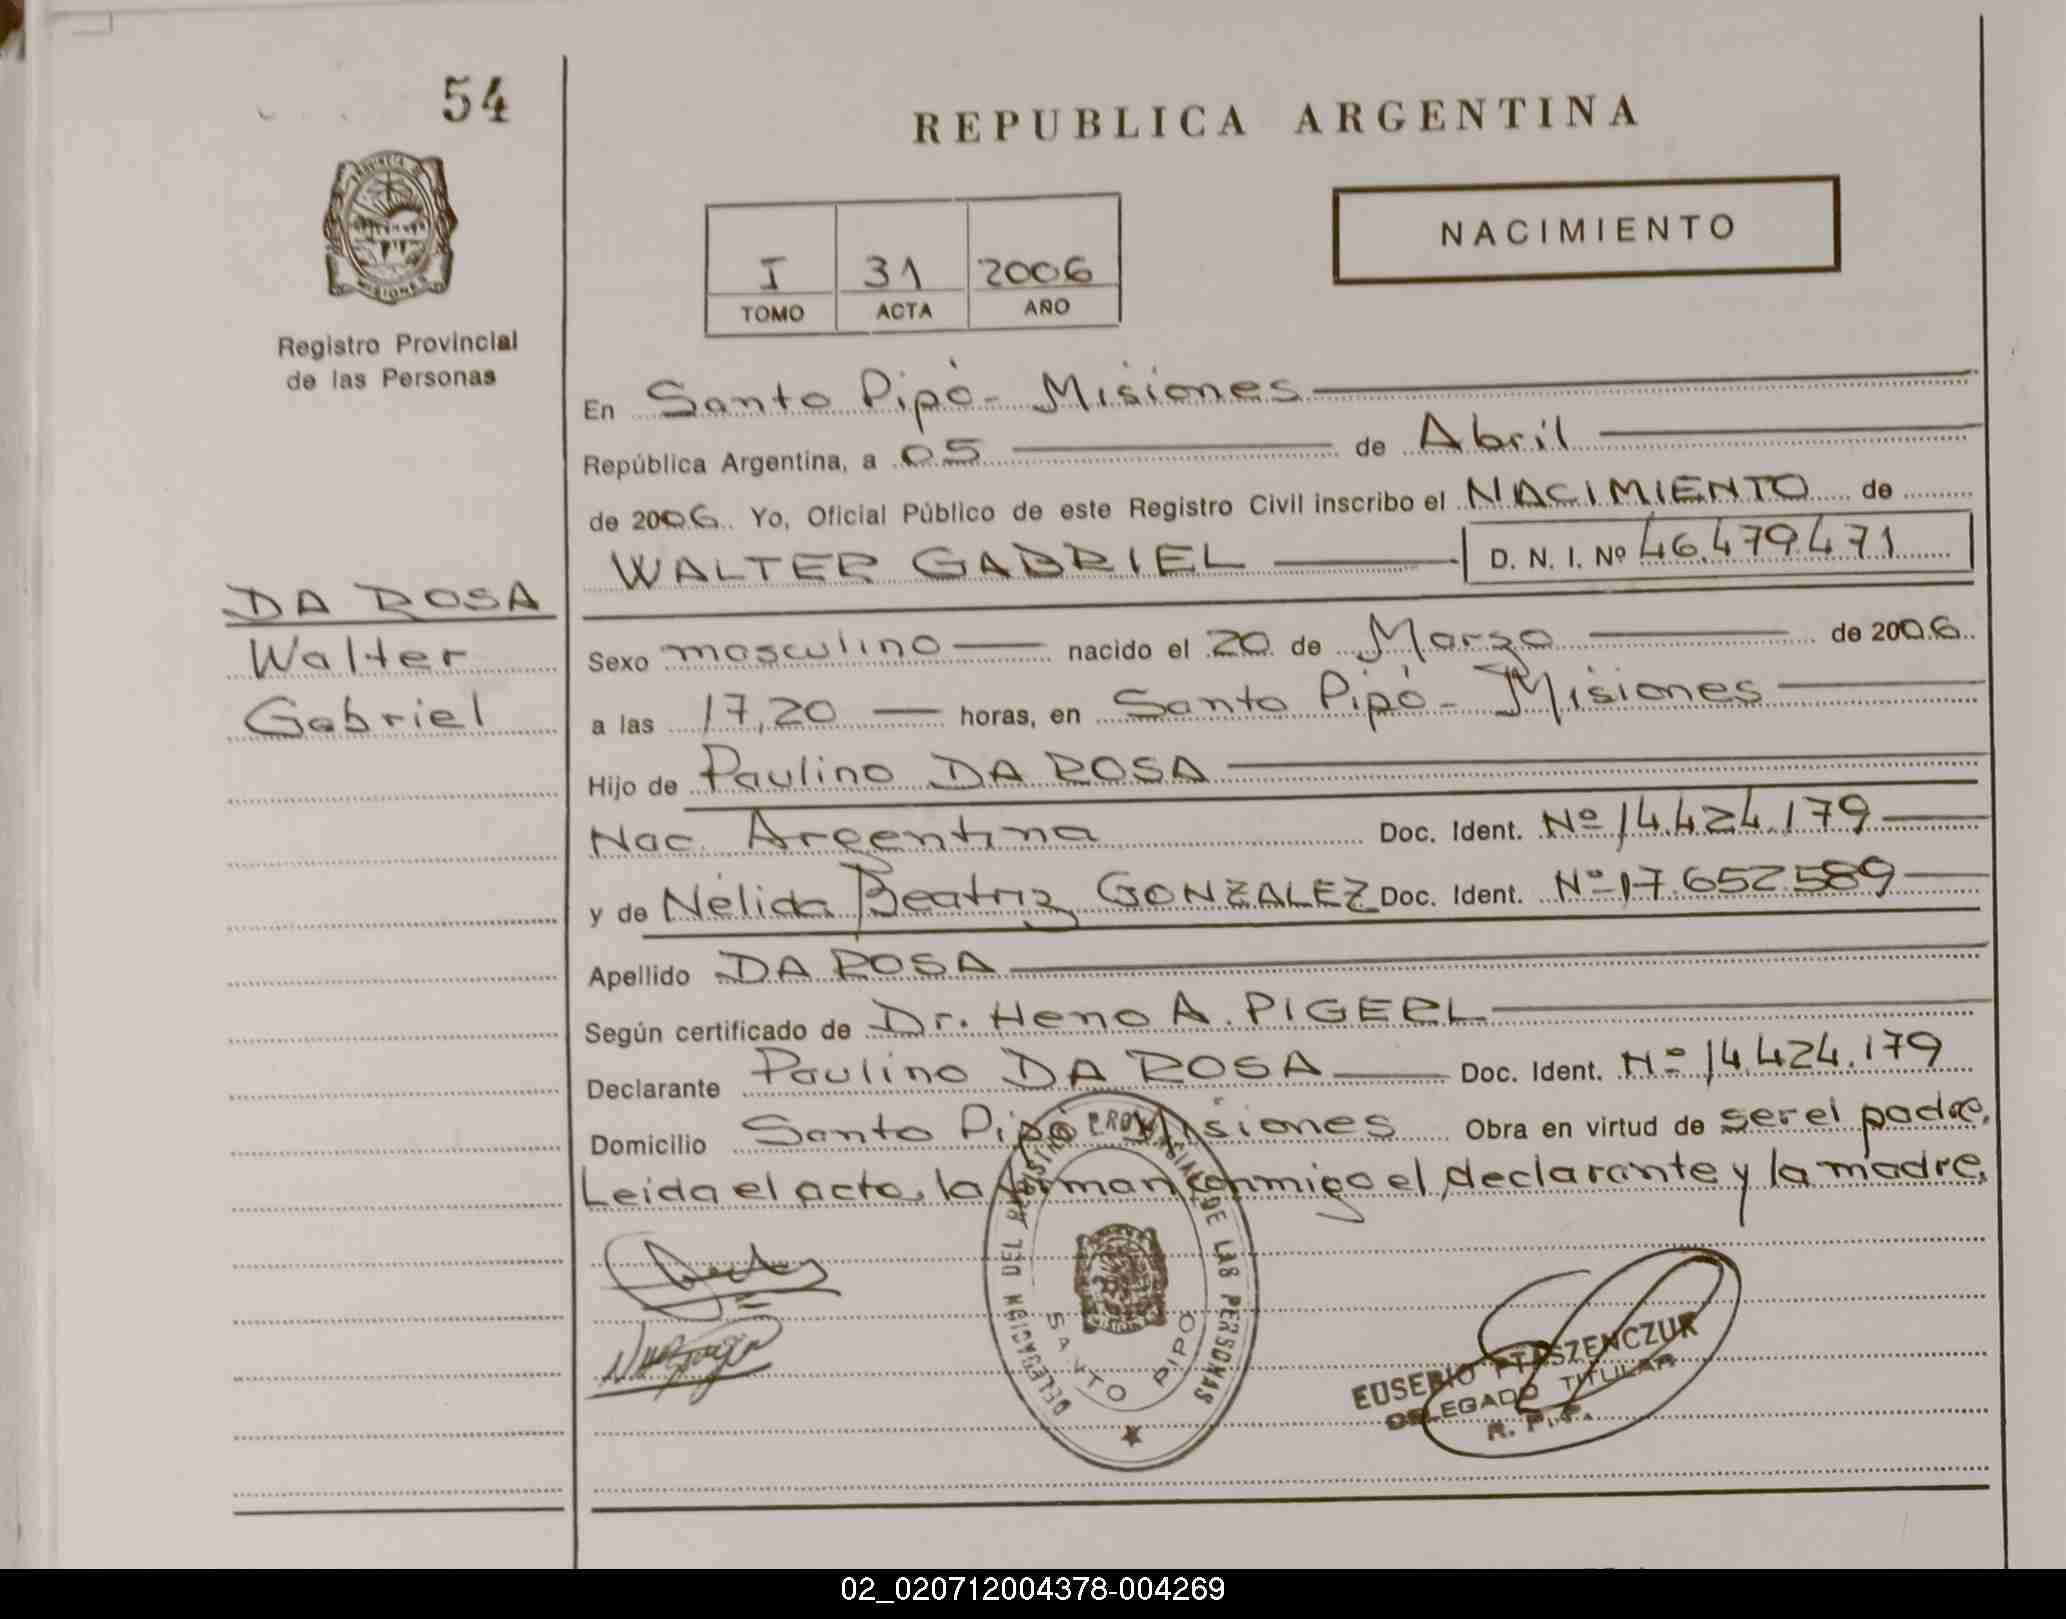 54
REPUBLICA ARGENTINA
PROVINCIA DE
MISIONES
Registro Provincial
de las Personas
I 31 2006
TOMO ACTA AÑO
NACIMIENTO
En Santo Pipó - Misiones
República Argentina, a 05 de Abril
de 2006. Yo, Oficial Público de este Registro Civil inscribo el NACIMIENTO de
WALTER GABRIEL D. N. I. Nº 46.479.471
DA ROSA
Walter
Gabriel
Sexo masculino nacido el 20 de Marzo de 2006.
a las 17,20 horas, en Santo Pipó - Misiones
Hijo de Paulino DA ROSA
Nac. Argentina Doc. Ident. Nº 14.424.179
y de Nélida Beatriz GONZALEZ Doc. Ident. Nº 17.652.589
Apellido DA ROSA
Según certificado de Dr. Heno A. PIGERL
Declarante Paulino DA ROSA Doc. Ident. Nº 14.424.179
Domicilio Santo Pipó Misiones Obra en virtud de ser el padre.
Leida el acta, la firman conmigo el declarante y la madre.
DELEGACION DEL REGISTRO PROVINCIAL DE LAS PERSONAS
SANTO PIPO
EUSEBIO PTASZENCZUK
DELEGADO TITULAR
R. P. P.
02_020712004378-004269